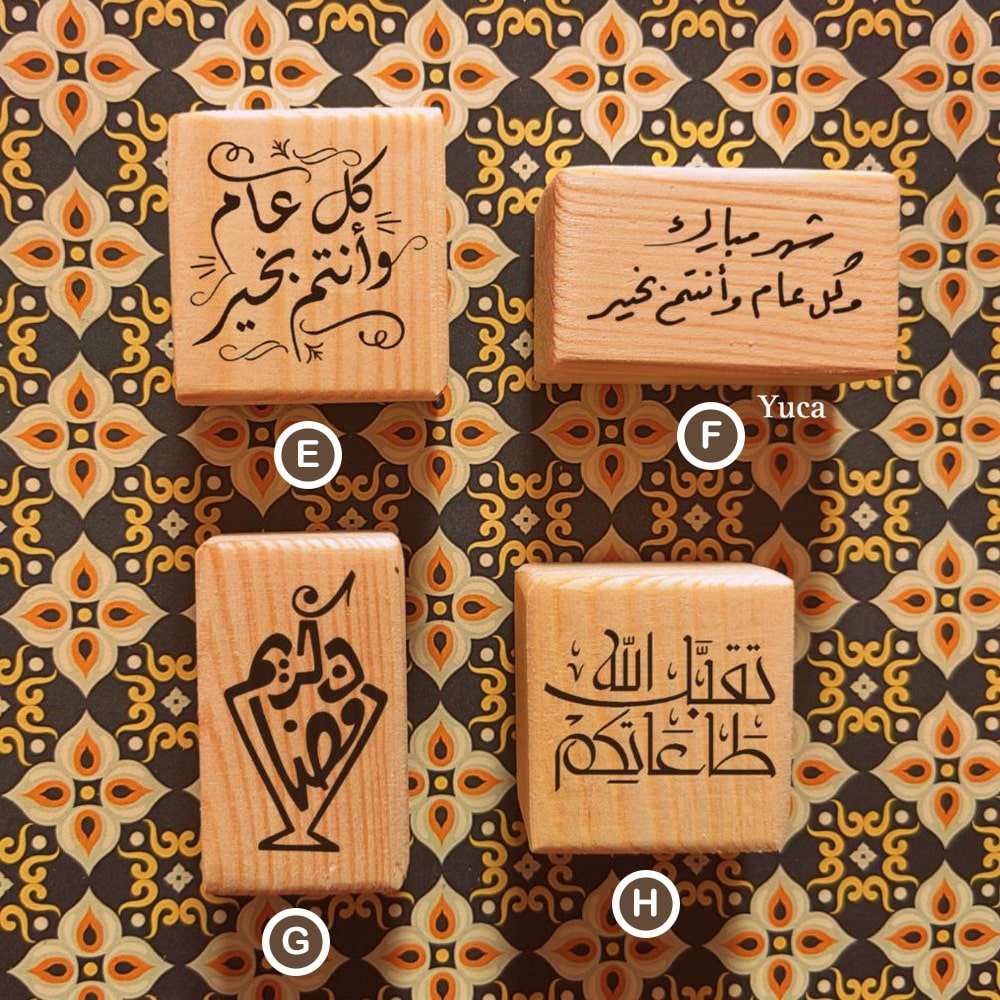 كل عام
وأنتم بخير
E
شهر مبارك
وكل عام وأنتم بخير
F
Yuca
رمضان كريم
G
تقبَّل الله
طَاعَاتِكم
H